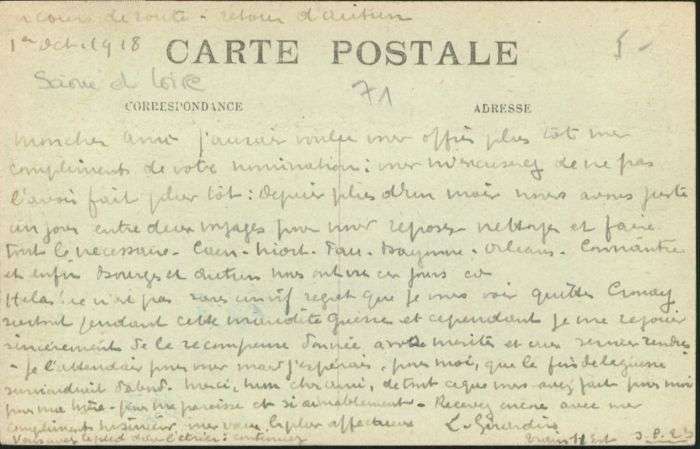 en cours de route - retour d'Autun
1er Oct. 1918
CARTE POSTALE
5-
Saône et Loire
71
CORRESPONDANCE
ADRESSE
mon cher ami j'aurais voulu vous offrir plus tôt mes
compliments de votre nomination: vous m'excuserez de ne pas
l'avoir fait plus tôt: Depuis plus d'un mois nous avons juste
un jour entre deux voyages pour nous reposer nettoyer et faire
tout le nécessaire - Caen - Niort - Pau - Bayonne - Orléans - Connantre
et enfin Bourges et Autun nous ont vu ces jours ci
Hélas! ce n'est pas sans un vif regret que je vous vois quitter
surtout pendant cette maudite guerre et cependant je me réjouis
sincèrement de la récompense donnée à votre mérite et aux services rendus
- je l'attendais pour vous mais j'espérais, pour moi, que la fin de la guerre
surviendrait d'abord. Merci, mon cher ami, de tout ce que vous avez fait pour moi
pour ma mère - pour ma paroisse et si aimablement - Recevez encore avec mes
compliments mes vœux les plus affectueux
L. Girardin
Vous avez le pied dans l'étrier: continuez
Est